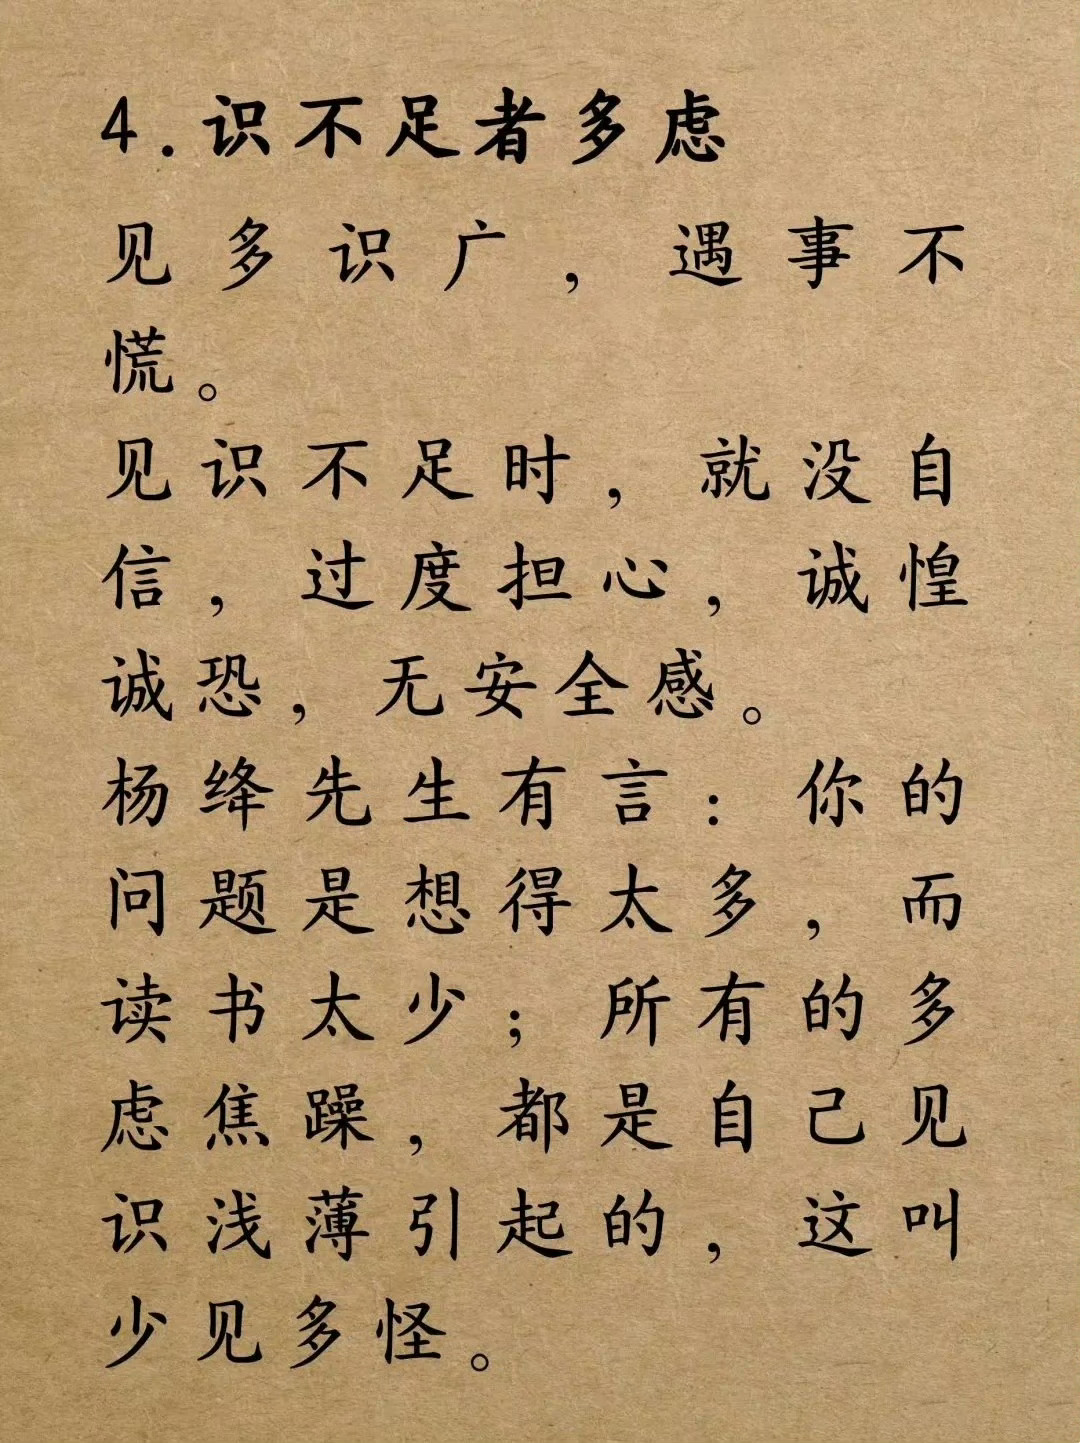 4.识不足者多虑
见多识广，遇事不
慌。
见识不足时，就没自
信，过度担心，诚惶
诚恐，无安全感。
杨绛先生有言：你的
问题是想得太多，而
读书太少；所有的多
虑焦躁，都是自己见
识浅薄引起的，这叫
少见多怪。